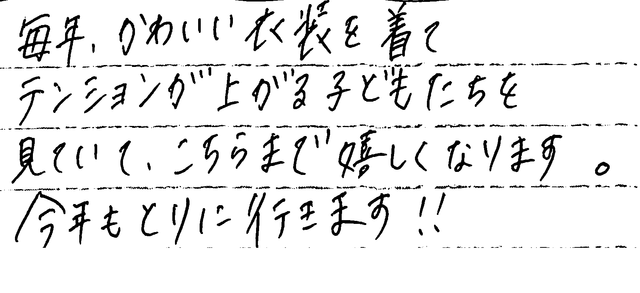 毎年、かわいい衣装を着て
テンションが上がる子どもたちを
見ていて、こちらまで嬉しくなります。
今年もとりに行きます!!